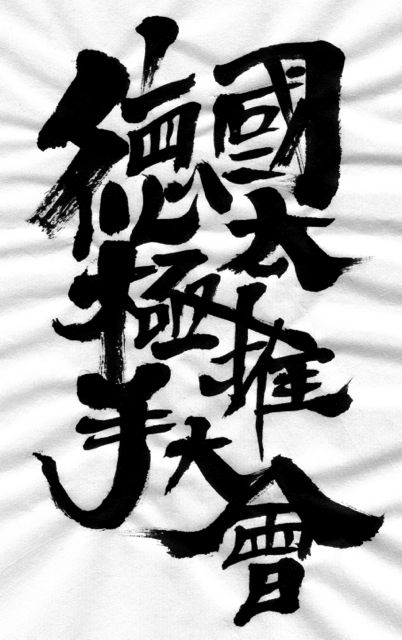 德國
太極
推手
大會